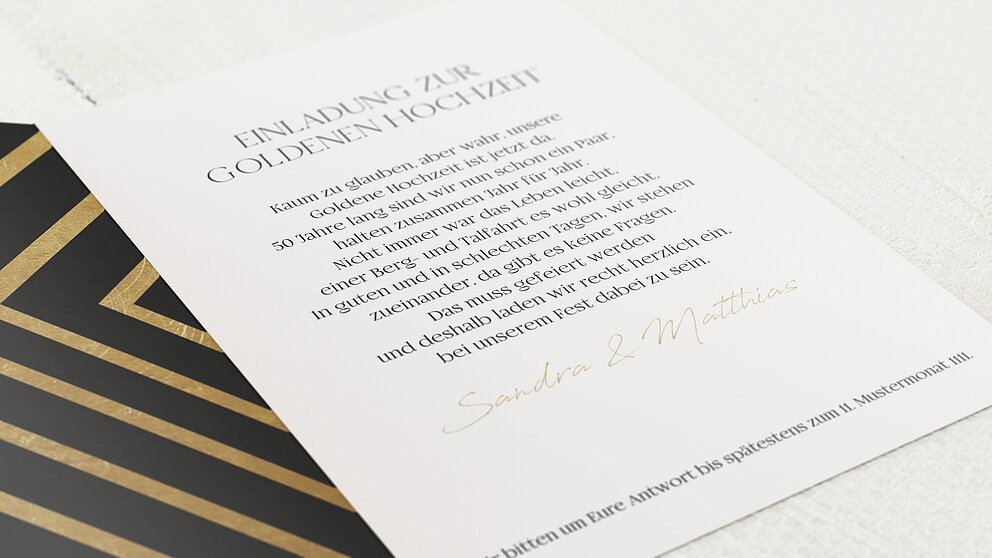 EINLADUNG ZUR
GOLDENEN HOCHZEIT
Kaum zu glauben, aber wahr, unsere
Goldene Hochzeit ist jetzt da.
50 Jahre lang sind wir nun schon ein Paar,
halten zusammen Jahr für Jahr.
Nicht immer war das Leben leicht,
einer Berg- und Talfahrt es wohl gleicht.
In guten und in schlechten Tagen, wir stehen
zueinander, da gibt es keine Fragen.
Das muss gefeiert werden
und deshalb laden wir recht herzlich ein,
bei unserem Fest dabei zu sein.
Sandra & Matthias
bitten um Eure Antwort bis spätestens zum 11. Mustermonat 1111.